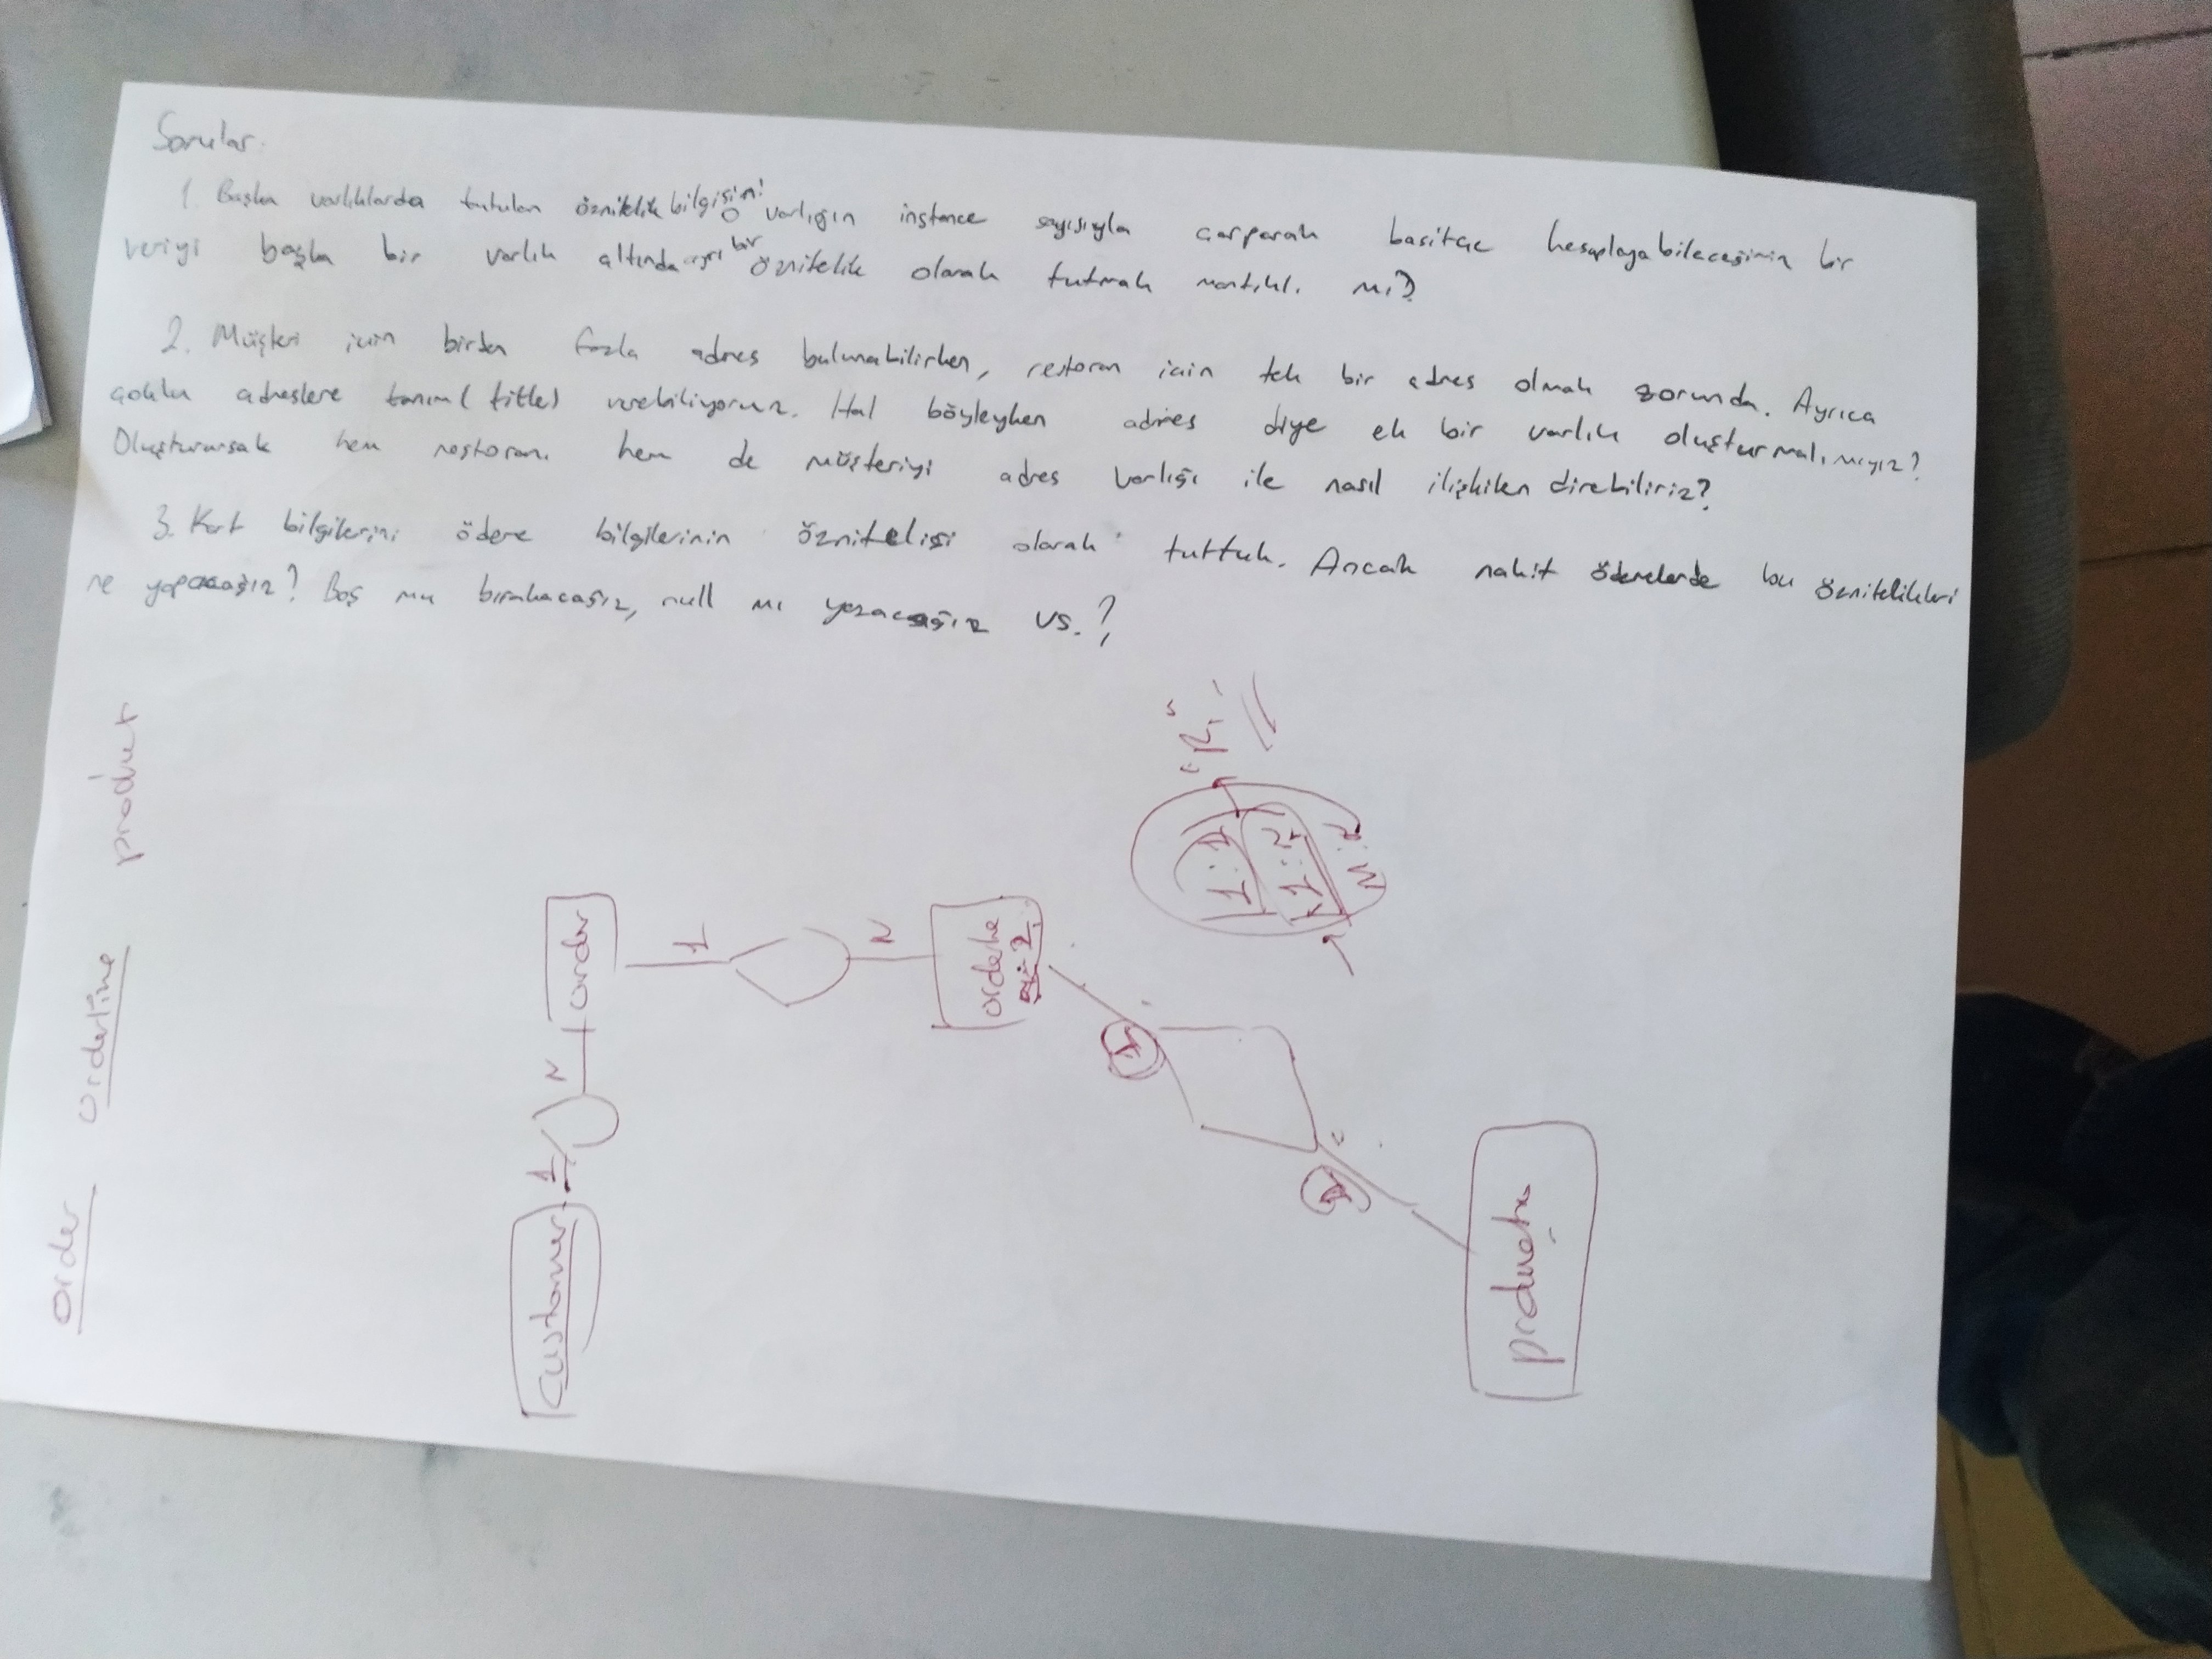 Sorular:
1. Başka varlıklarda tutulan öznitelik bilgisini o varlığın instance sayısıyla çarparak basitçe hesaplayabileceğimiz bir
veriyi başka bir varlık altında ayrı bir öznitelik olarak tutmak mantıklı mı?
2. Müşteri için birden fazla adres bulunabilirken, restoran için tek bir adres olmak zorunda. Ayrıca
çoklu adreslere tanım (title) verebiliyoruz. Hal böyleyken adres diye ek bir varlık oluşturmalı mıyız?
Oluşturursak hem restoranı hem de müşteriyi adres varlığı ile nasıl ilişkilendirebiliriz?
3. Kart bilgilerini ödeme bilgilerinin özniteliği olarak tuttuk. Ancak nakit ödemelerde bu öznitelikleri
ne yapacağız? Boş mu bırakacağız, null mı yazacağız vs.?
Order Orderline product
Customer 1 N order
1 N
1:1
1:N
M:N